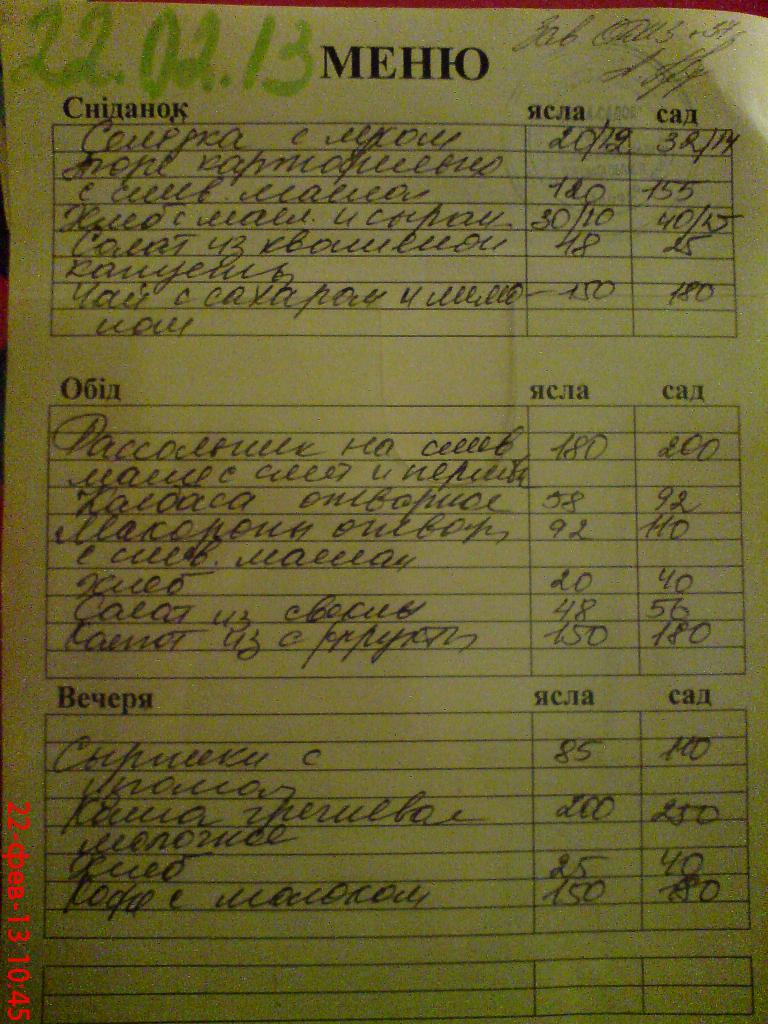 22.02.13
МЕНЮ
Сніданок ясла сад
Селёдка с луком 20/12 32/14
пюре картофельно
с слив. маслом 120 155
Хлеб с масл. и сыром 30/10 40/15
Салат из квашеной 48 25
капусты
Чай с сахаром и лимо- 150 180
ном
Обід ясла сад
Рассольник на слив 180 200
масле с смет и
Колбаса отварное 58 92
Макароны отвар, 92 110
с слив. маслом
Хлеб 20 40
Салат из свеклы 48 56
Компот из с/фрукты 150 180
Вечеря ясла сад
Сырники с 85 110
Каша гречневая 200 250
молочное
Хлеб 25 40
Кофе с молоком 150 180
22-фев-13 10:45